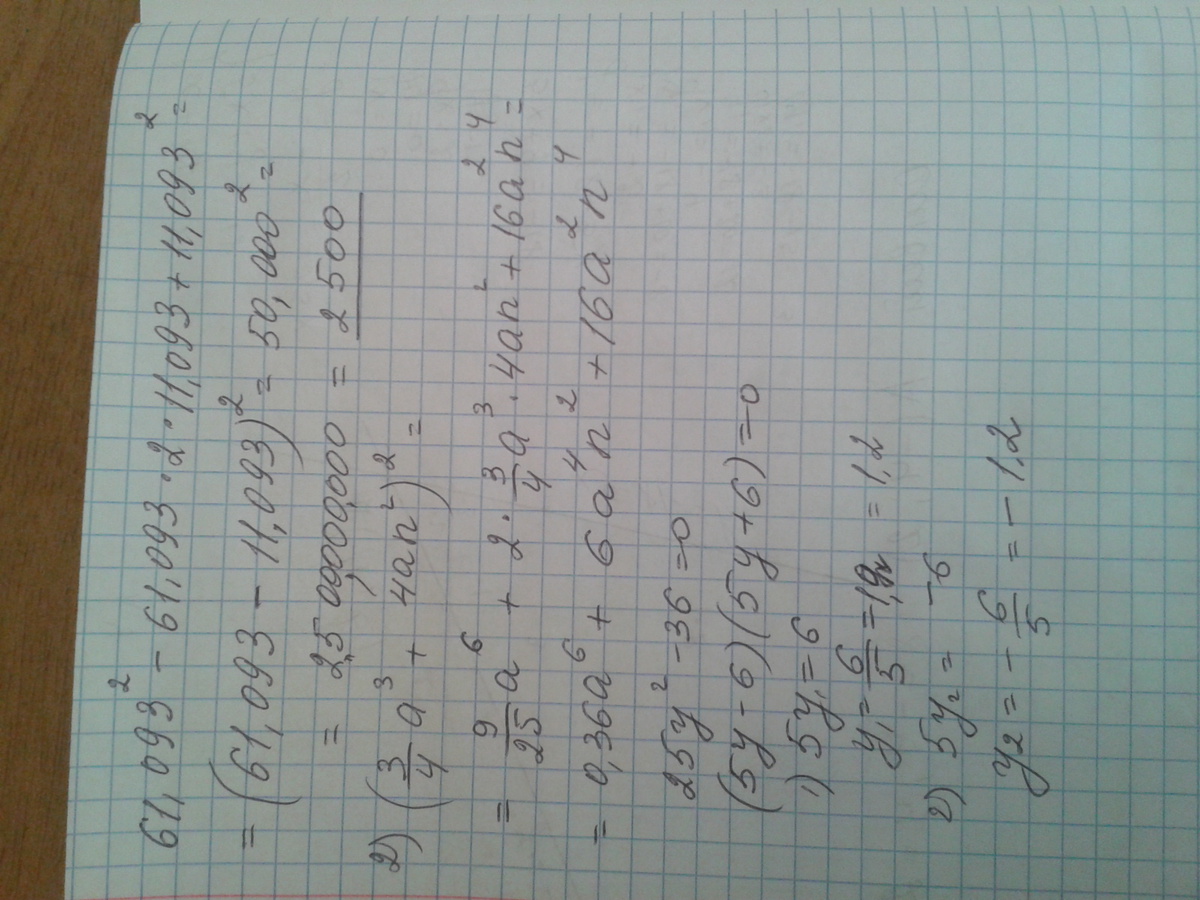 61,093² - 61,093 · 2 · 11,093 + 11,093² =
= (61,093 - 11,093)² = 50,000² =
= 25 00,000,000 = 2500
2) (3/4 a³ + 4an²)² =
= 9/25 a⁶ + 2 · 3/4 a³ · 4an² + 16a²n⁴ =
= 0,36a⁶ + 6a⁴n² + 16a²n⁴
25y² - 36 = 0
(5y - 6)(5y + 6) = 0
1) 5y₁ = 6
y₁ = 6/5 = 1,2
2) 5y₂ = -6
y₂ = - 6/5 = - 1,2